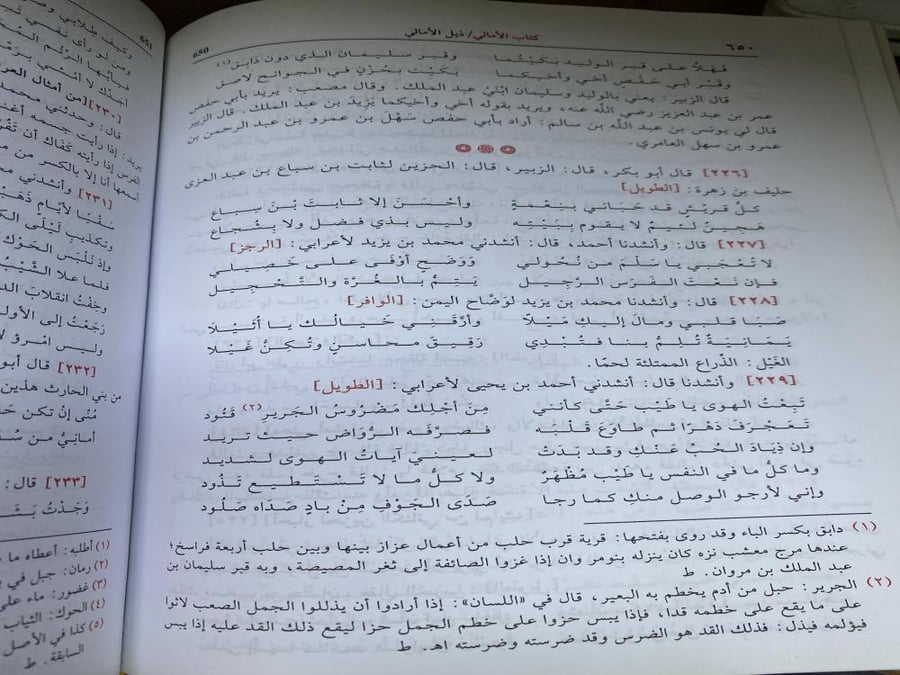 كتاب الأمالي/ ذيل الأمالي
٦٥٠
650
فهلا على قبر الوليد بكيتما وقبر سليمان الذي دون دابق(١)
وقبر أبي حفص أخي وأخيكما بكيت بحزن في الجوانح لاصق
قال الزبير: يعني بالوليد وسليمان ابني عبد الملك. وقال مصعب: يريد بأبي حفص
عمر بن عبد العزيز رضي الله عنه، ويريد بقوله أخي وأخيكما يزيد بن عبد الملك. قال الزبير
قال لي يونس بن عبد الله بن سالم: أراد بأبي حفص سهل بن عمرو بن عبد الرحمن بن
عمرو بن سهل العامري.
[٢٢٦] قال أبو بكر، قال: الزبير، قال: الحزين لثابت بن سباع بن عبد العزى
حليف بن زهرة: [الطويل]
كل قريش قد حباني بنعمة وأحسن إلا ثابت بن سباع
هجين لئيم لا يقوم ببيته وليس بذي فضل ولا بشجاع
[٢٢٧] قال: وأنشدنا أحمد، قال: أنشدني محمد بن يزيد لأعرابي: [الرجز]
لا تعجبي يا سلم من نحولي ووضح أوفى على خصيلي
فإن نعت الفرس الرجيل يتم بالغرة والتحجيل
[٢٢٨] قال: وأنشدنا محمد بن يزيد لوضاح اليمن: [الوافر]
صبا قلبي ومال إليك ميلا وأرقني خيالك يا أثيلا
يمانية تلم بنا فتبدي رقيق محاسن وتكن غيلا
الغيل: الذراع الممتلئة لحما.
[٢٢٩] وأنشدنا قال: أنشدني أحمد بن يحيى لأعرابي: [الطويل]
تبعت الهوى يا طيب حتى كأنني من أجلك مضروس الجرير(٢) قتود
تعجرف دهرا ثم طاوع قلبه فصرفه الرواض حيث تريد
وإن ذياد الحب عنك وقد بدت لعيني آيات الهوى لشديد
وما كل ما في النفس يا طيب مظهر ولا كل ما لا تستطيع تذود
وإني لأرجو الوصل منك كما رجا صدى الجوف من باد صداه صلود
(١) دابق بكسر الباء وقد روى بفتحها: قرية قرب حلب من أعمال عزاز بينها وبين حلب أربعة فراسخ؛
عندها مرج معشب نزه كان ينزله بنومر وان إذا غزوا الصائفة إلى ثغر المصيصة، وبه قبر سليمان بن
عبد الملك بن مروان. ط
(٢) الجرير: حبل من أدم يخطم به البعير، قال في «اللسان»: إذا أرادوا أن يذللوا الجمل الصعب لاثوا
على ما يقع على خطمه قدا، فإذا يبس حزوا على خطم الجمل حزا ليقع ذلك القد عليه إذا يبس
فيؤلمه فيذل: فذلك القد هو الضرس وقد ضرسته وضرسته اهـ. ط
651
[٢٣٠] [من أمثال
قال: وحدثني محمد
يريد: إذا رأيت جسمه
[٢٣١] وأنشدني
سقيا لأيام
وتكذيب ليلى
وإذ نلبس الحوك
فلما علا الشيب
وخفت انقلاب
رجعت إلى
وليس امرؤ
[٢٣٢] قال أبو
من بني الحارث هذين
منى إن تكن
أماني من
[٢٣٣] قال:
وجدت
(١) أطلبه: أعطاه ما
(٢) رمان: جبل في
(٣) غضور: ماء على
(٤) الحوك: الثياب
(٥) كذا في الأصل
السابقة. ط